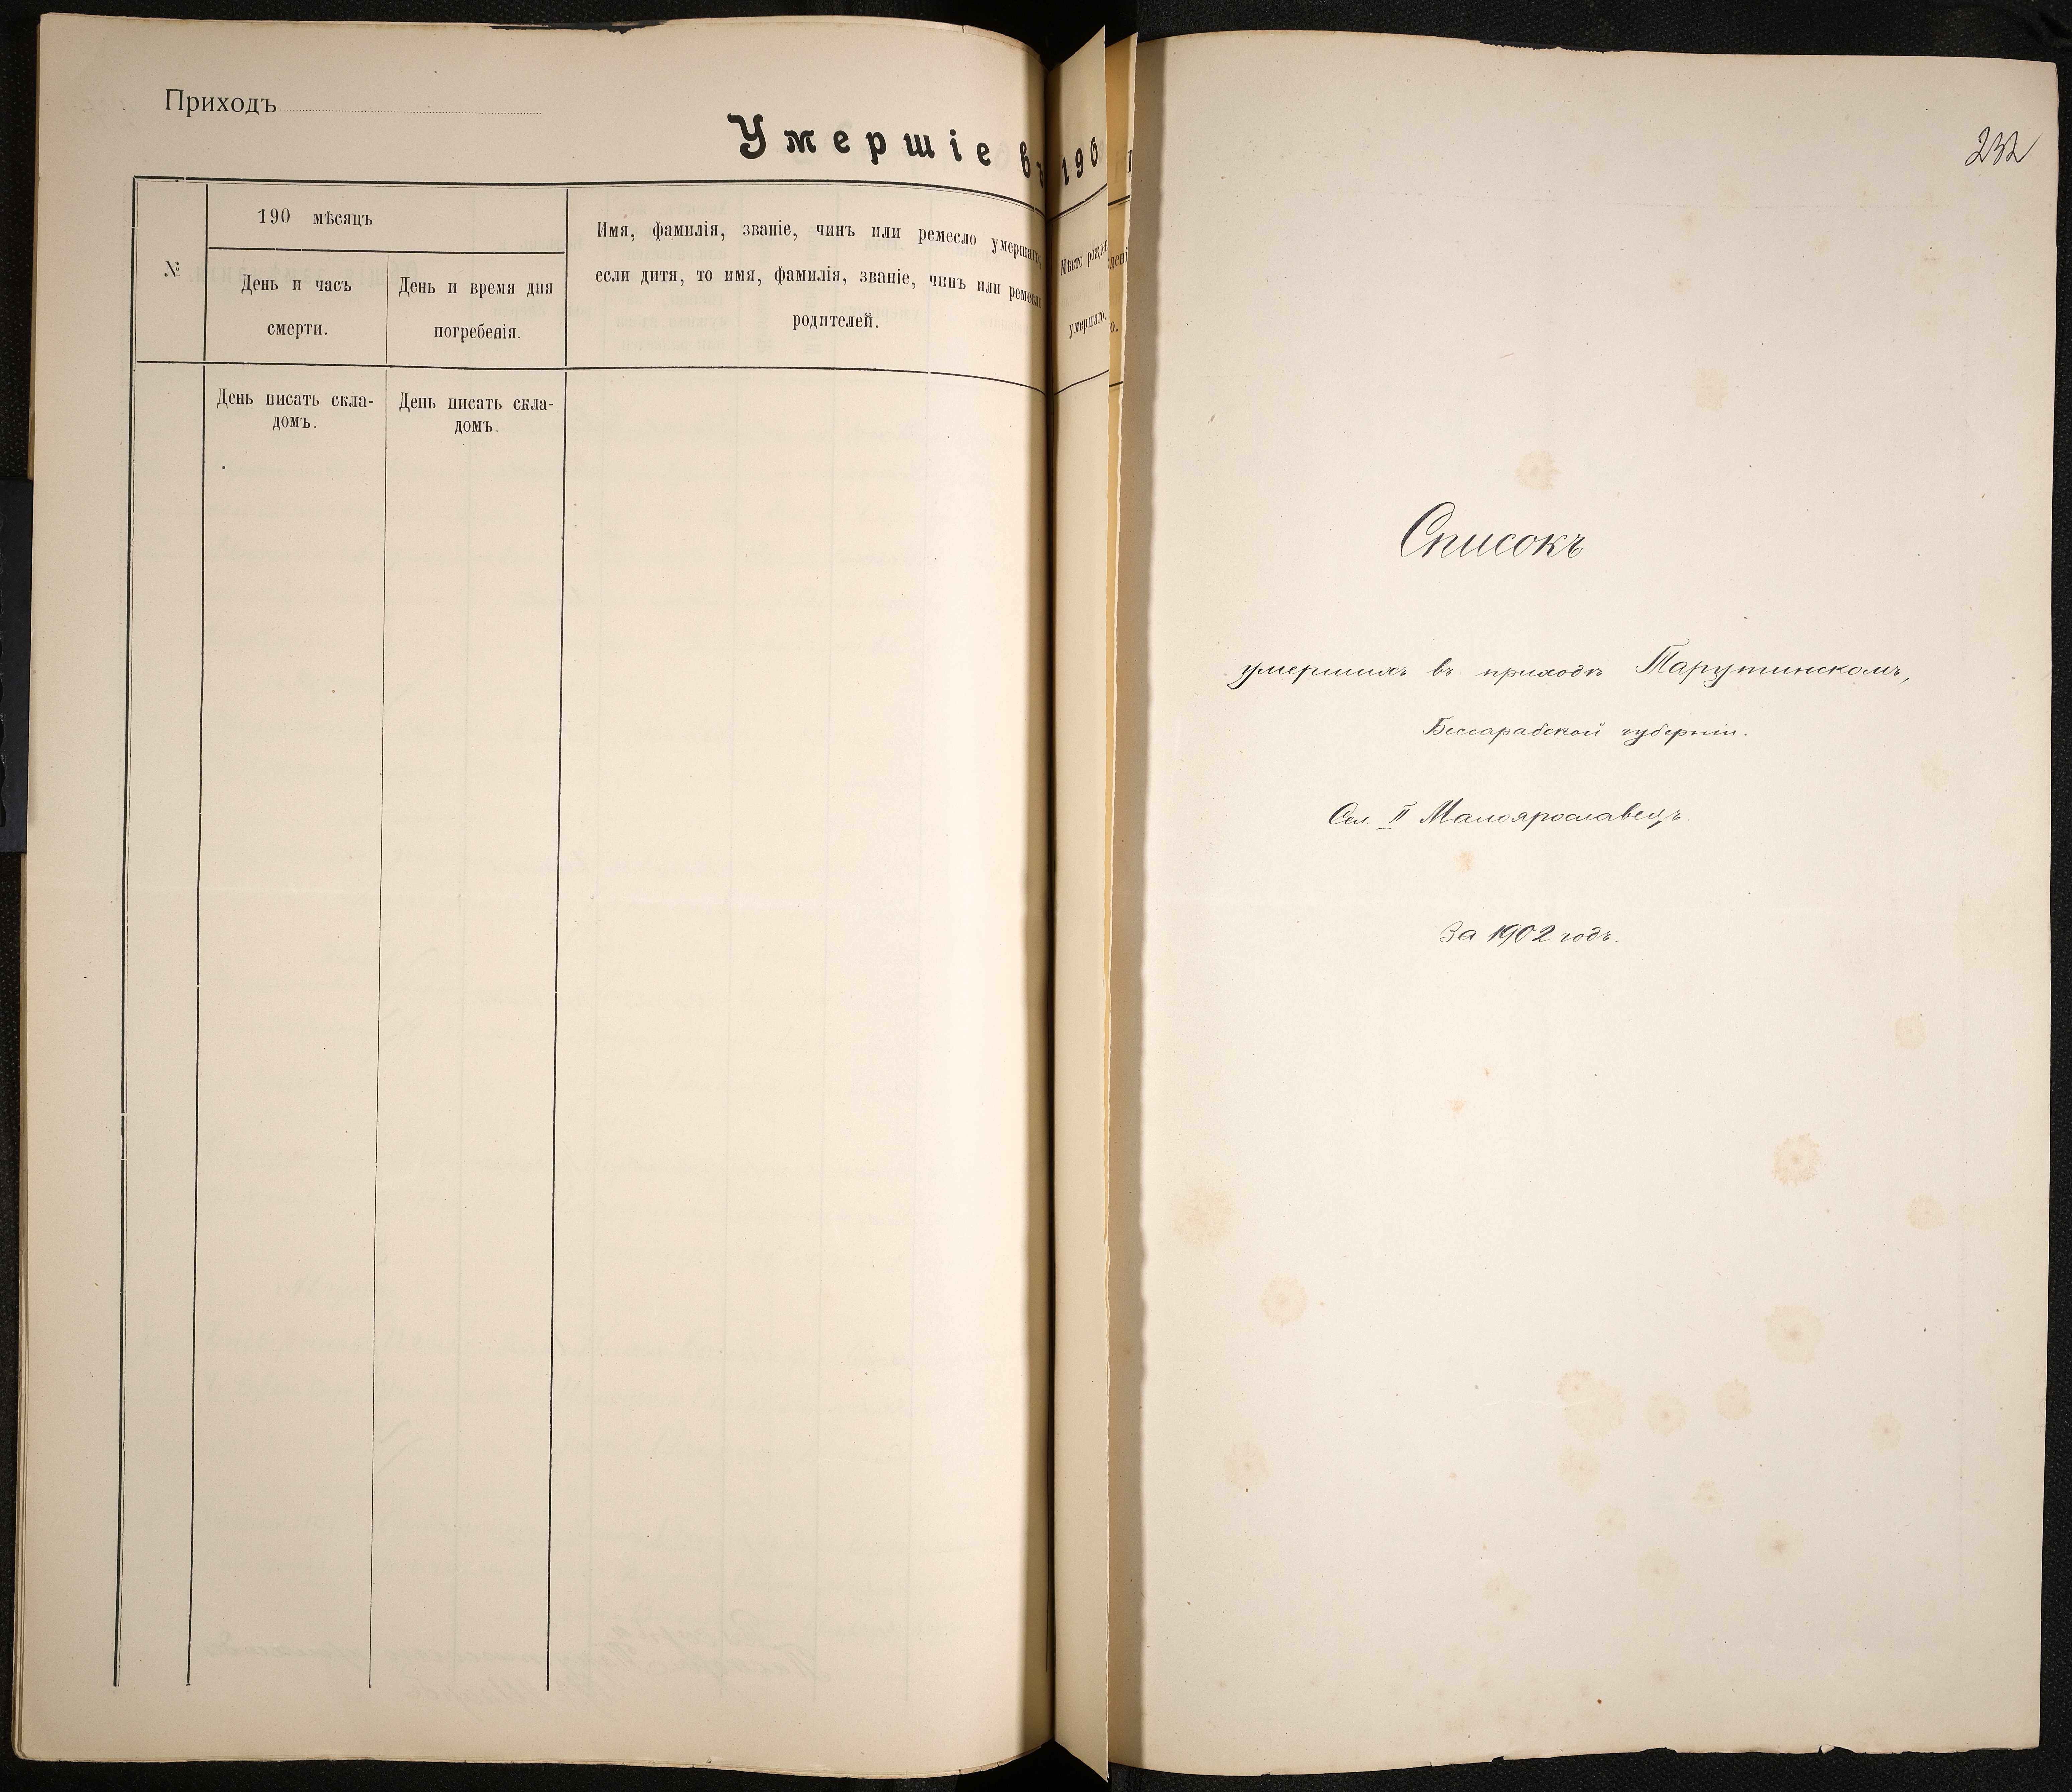 Приходъ
Умершіе въ 190
№
190 мѣсяцъ
День и часъ
смерти.
День и время дня
погребенія.
Имя, фамилія, званіе, чинъ или ремесло умершаго;
если дитя, то имя, фамилія, званіе, чинъ или ремесло
родителей.
Мѣсто рожден
умершаго.
День писать скла-
домъ.
День писать скла-
домъ.
232
Списокъ
умершихъ въ приходѣ Тарутинскомъ,
Бессарабской губерніи.
Сел. II Малоярославецъ.
За 1902 годъ.